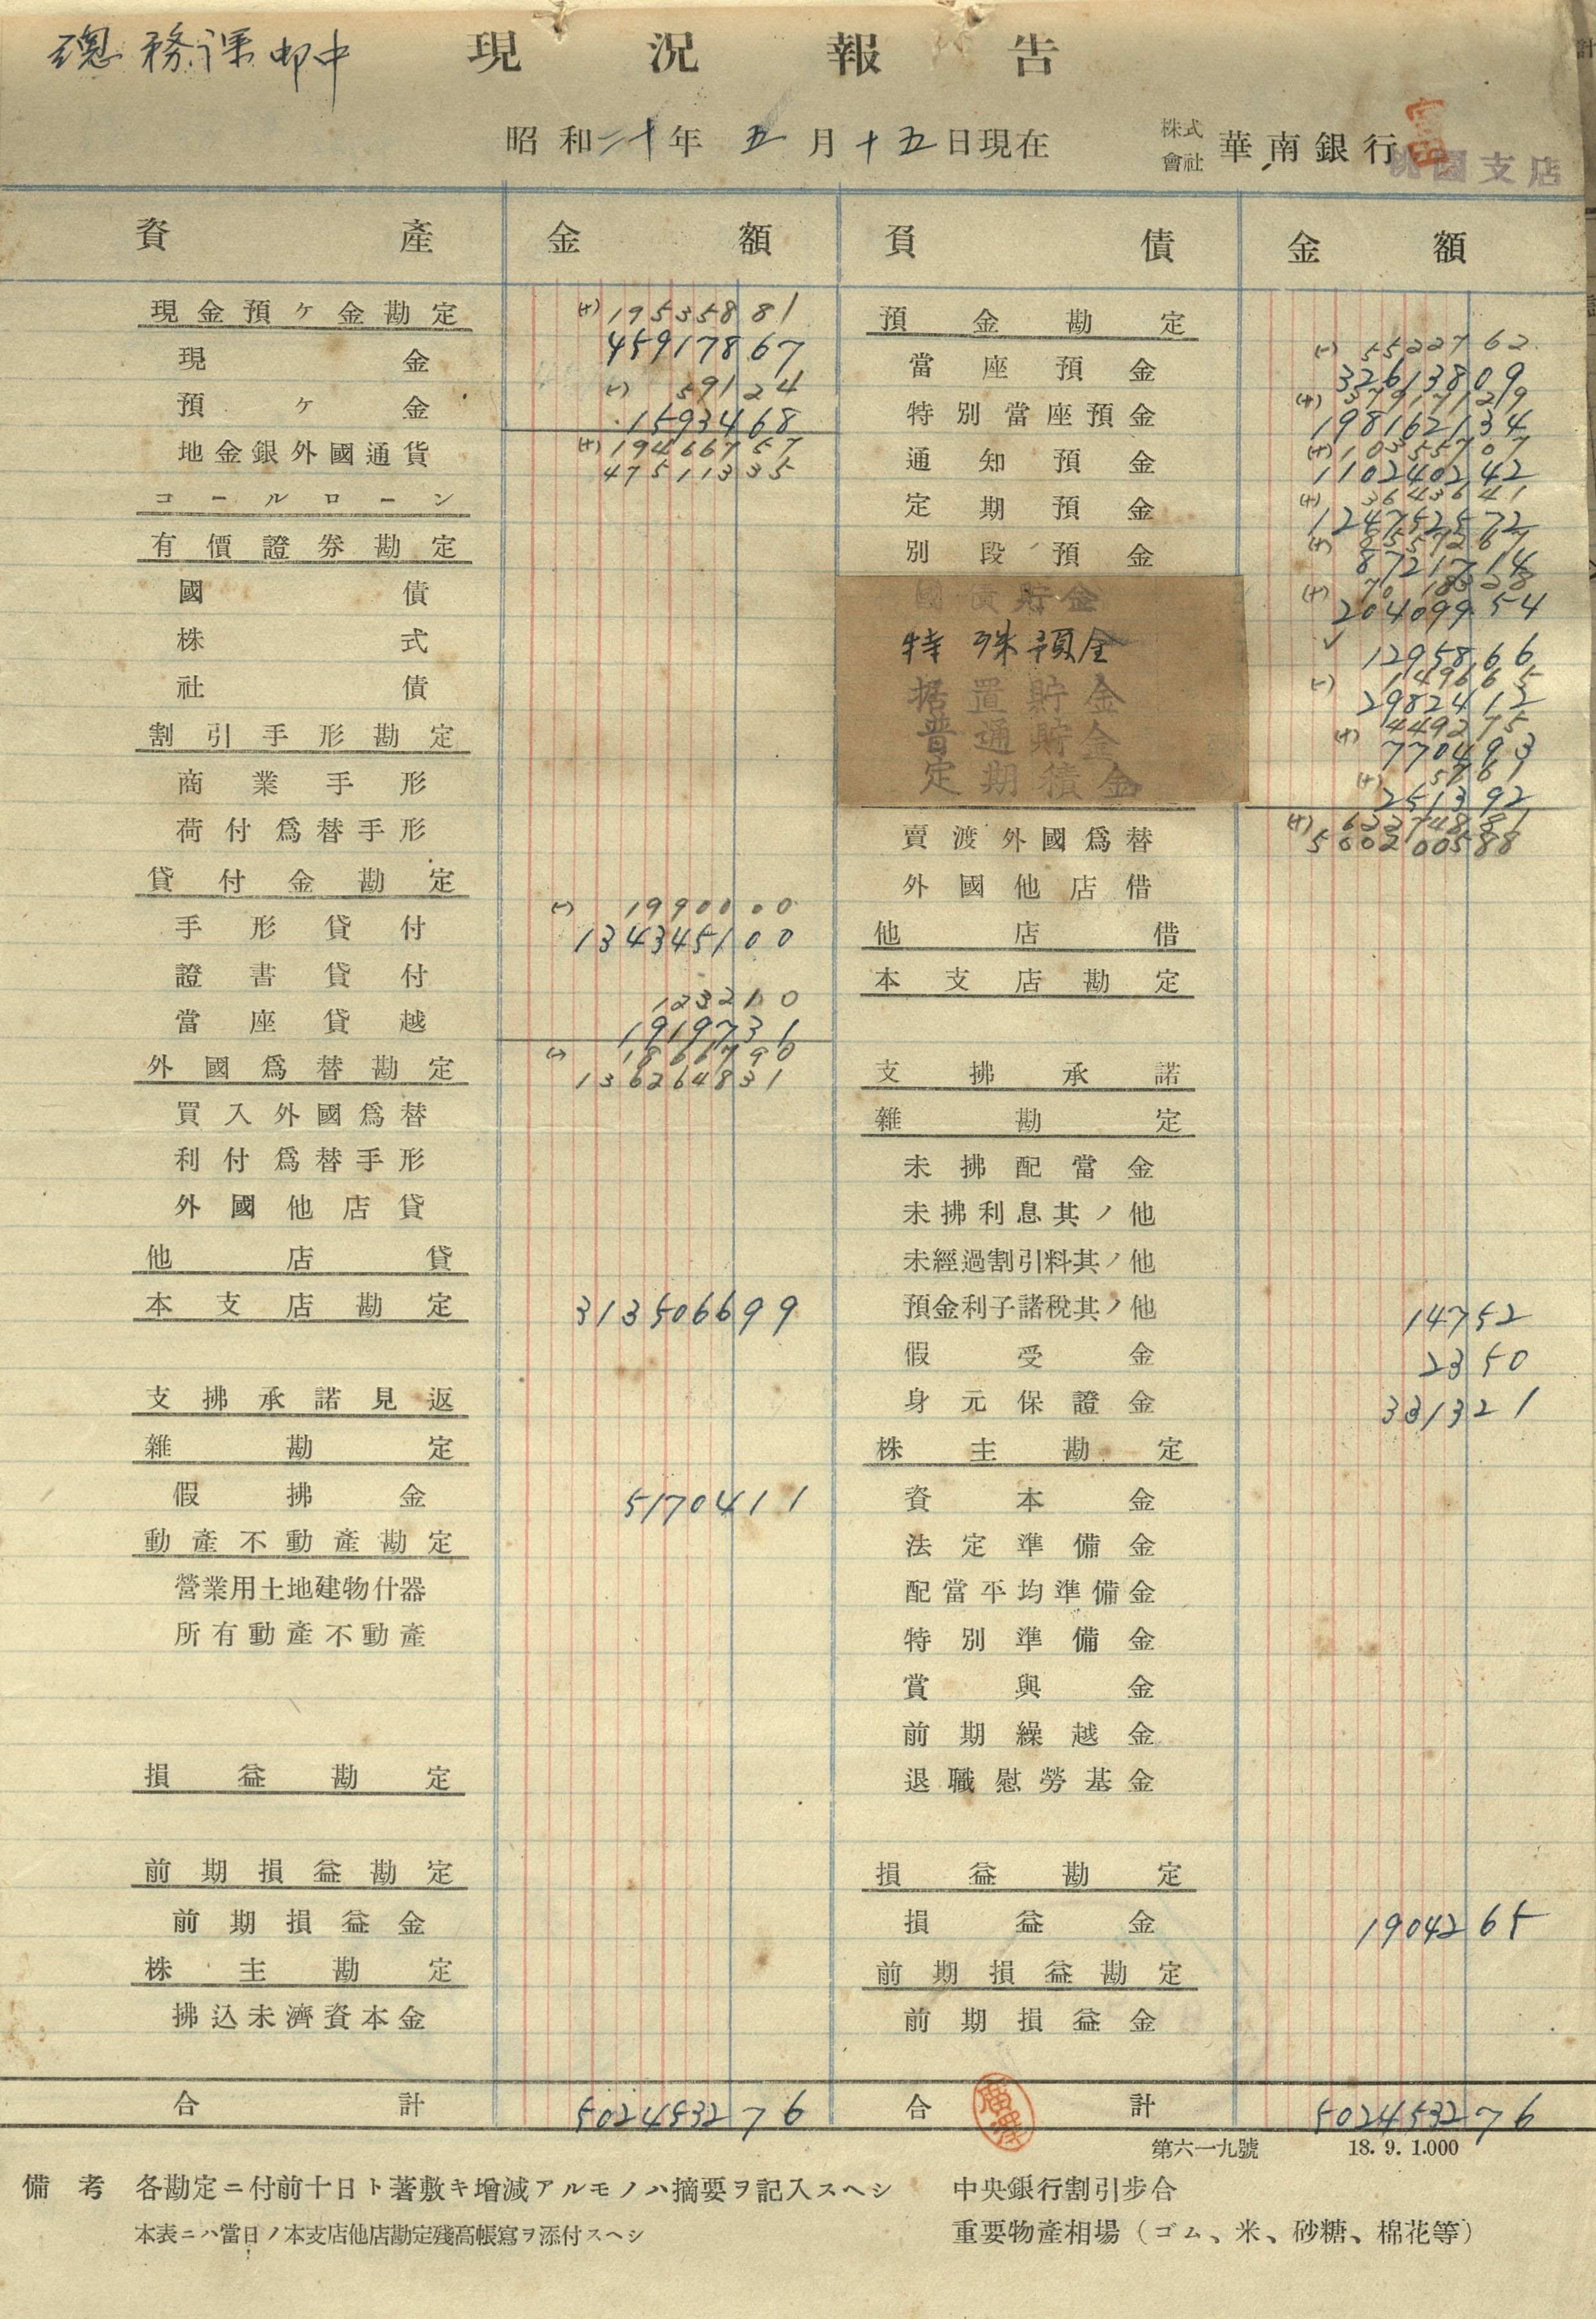 總務課御中
現況報告
昭和二十年五月十五日現在
株式會社 華南銀行 桃園支店
資產 金額 負債 金額
現金預ヶ金勘定 (+) 195358 81
現金 459178 67
(-) 591 24
預ヶ金 15934 68
地金銀外國通貨 (+) 194667 57
475113 35
コールローン
有價證券勘定
國債
株式
社債
割引手形勘定
商業手形
荷付爲替手形
貸付金勘定
(-) 19900 00
手形貸付 1343451 00
證書貸付
1232 10
當座貸越 19197 31
外國爲替勘定 (-) 18667 90
1362648 31
買入外國爲替
利付爲替手形
外國他店貸
他店貸
本支店勘定 3135066 99
支拂承諾見返
雜勘定
假拂金 51704 11
動產不動產勘定
營業用土地建物什器
所有動產不動產
損益勘定
前期損益勘定
前期損益金
株主勘定
拂込未濟資本金
合計 5024532 76
預金勘定
(-) 55227 62
當座預金 326138 09
特別當座預金 1981621 34
(+) 103557 07
通知預金 1102402 42
(+) 36436 41
定期預金 1247525 72
(+) 85572 67
別段預金 87217 14
國債貯金 204099 54
特殊預金 12958 66
(-) 1496 65
据置貯金 29824 12
(+) 4492 75
普通貯金 7704 93
(+) 57 61
定期積金 2513 92
賣渡外國爲替 (+) 622748 81
5002005 88
外國他店借
他店借
本支店勘定
支拂承諾
雜勘定
未拂配當金
未拂利息其ノ他
未經過割引料其ノ他
預金利子諸稅其ノ他 147 52
假受金 23 50
身元保證金 3313 21
株主勘定
資本金
法定準備金
配當平均準備金
特別準備金
賞與金
前期繰越金
退職慰勞基金
損益勘定
損益金 19042 65
前期損益勘定
前期損益金
合計 5024532 76
第六一九號 18. 9. 1.000
備考 各勘定ニ付前十日ト著敷キ增減アルモノハ摘要ヲ記入スヘシ
本表ニハ當日ノ本支店他店勘定殘高帳寫ヲ添付スヘシ
中央銀行割引步合
重要物產相場（ゴム、米、砂糖、棉花等）